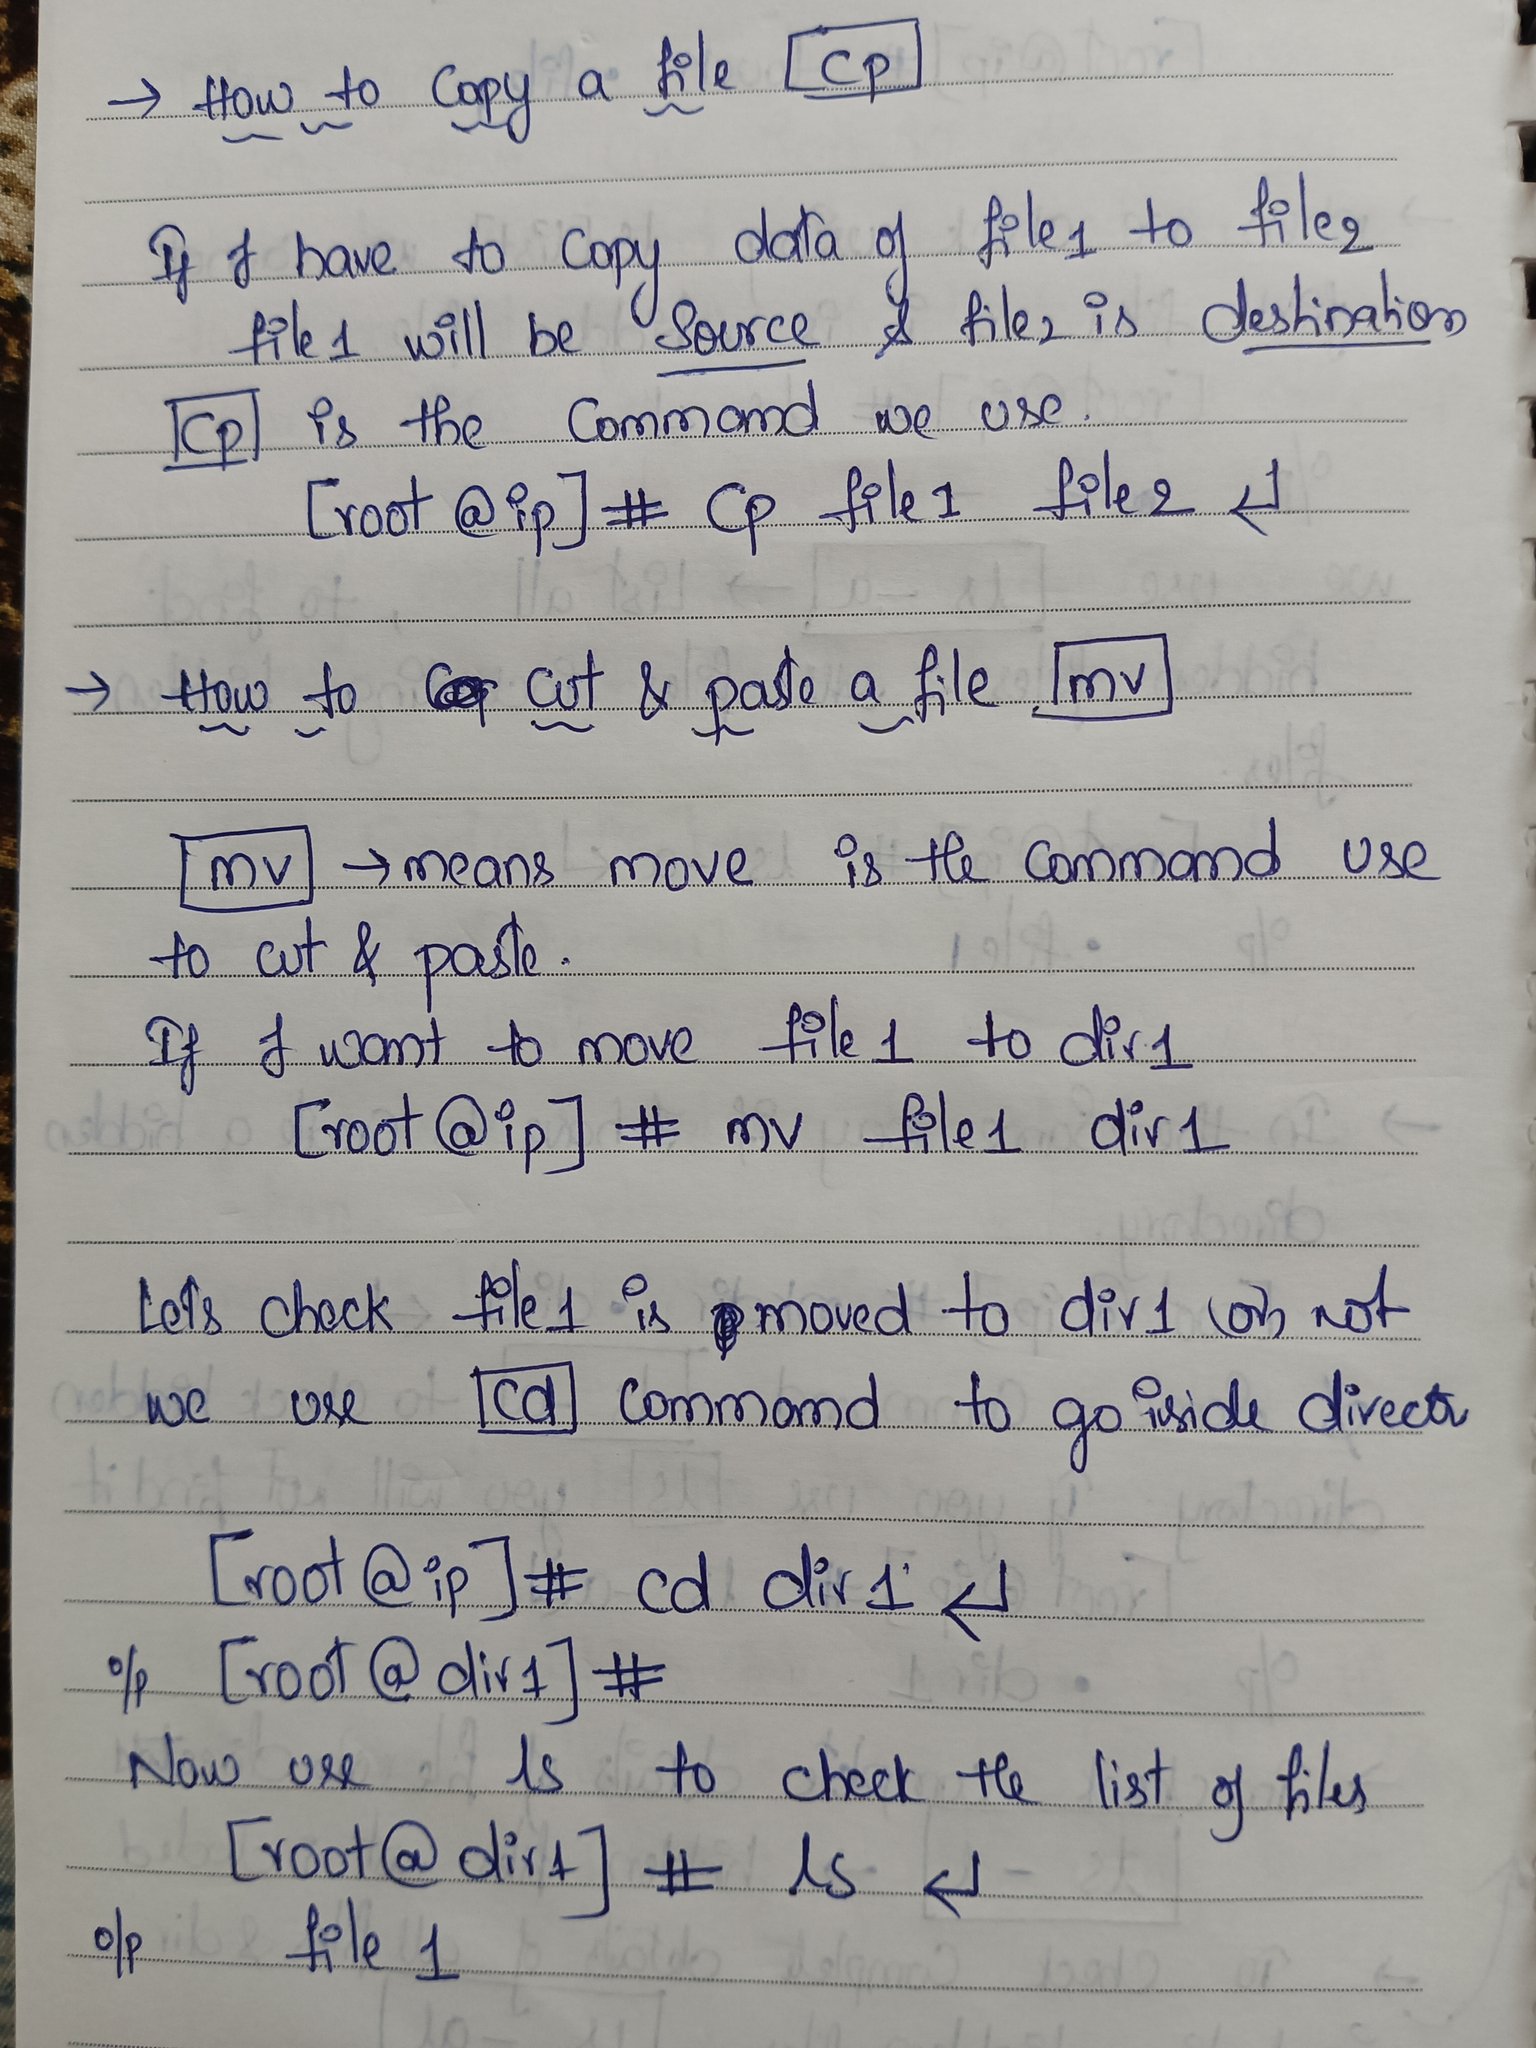 → How to Copy a file Cp
If I have to Copy data of file1 to file2
file1 will be Source & file2 is destination
Cp is the Command we use.
[root@ip]# Cp file1 file2 ↵
→ How to cut & paste a file mv
mv → means move is the Command use
to cut & paste.
If I want to move file1 to dir1
[root@ip]# mv file1 dir1
Lets check file1 is moved to dir1 (or) not
we use cd Command to go inside
[root@ip]# cd dir1 ↵
o/p [root@dir1]#
Now use ls to check the list of files
[root@dir1]# ls ↵
o/p file1